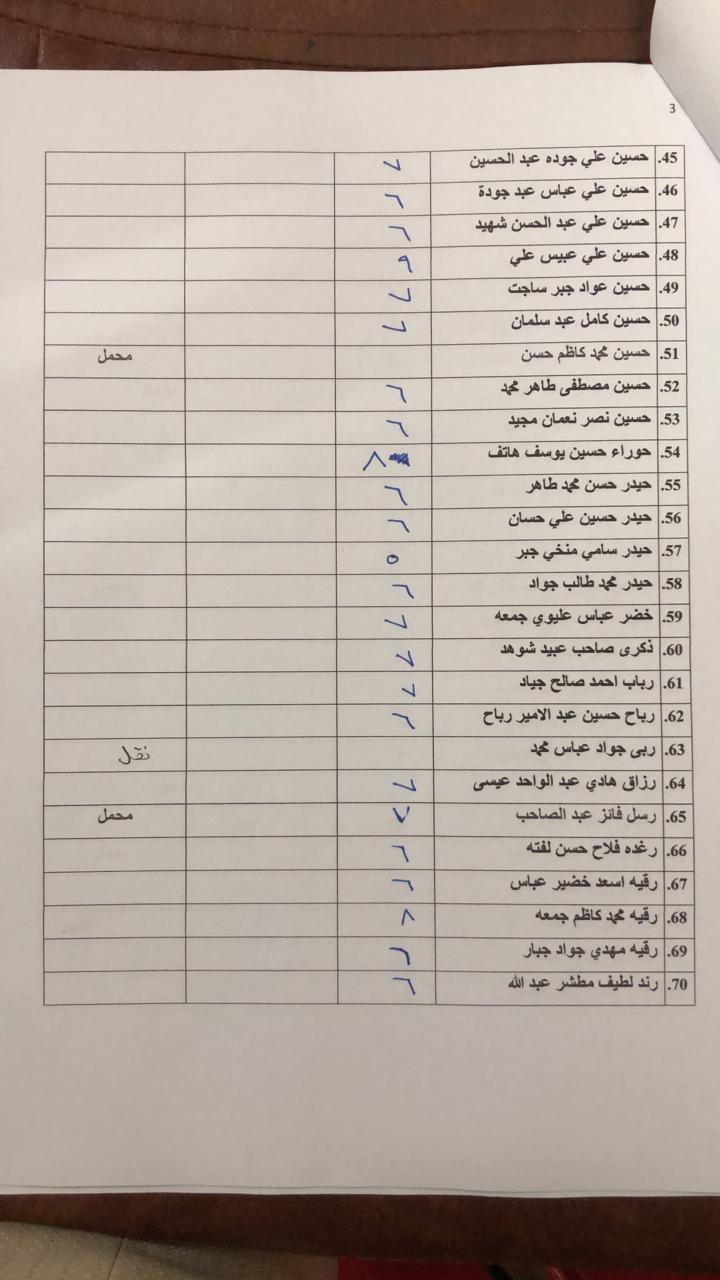 3
.45 حسين علي جوده عبد الحسين ٧
.46 حسين علي عباس عبد جودة ٦
.47 حسين علي عبد الحسن شهيد ٦
.48 حسين علي عبيس علي ٩
.49 حسين عواد جبر ساجت ٧
.50 حسين كامل عبد سلمان ٧
.51 حسين محمد كاظم حسن محمل
.52 حسين مصطفى طاهر محمد ٦
.53 حسين نصر نعمان مجيد ٦
.54 حوراء حسين يوسف هاتف ٨
.55 حيدر حسن محمد طاهر ٦
.56 حيدر حسين علي حسان ٦
.57 حيدر سامي منخي جبر ٥
.58 حيدر محمد طالب جواد ٦
.59 خضر عباس عليوي جمعه ٧
.60 ذكرى صاحب عبيد شوهد ٧
.61 رباب احمد صالح جياد ٧
.62 رباح حسين عبد الامير رباح ٦
.63 ربى جواد عباس محمد نقل
.64 رزاق هادي عبد الواحد عيسى ٧
.65 رسل فائز عبد الصاحب ٧ محمل
.66 رغده فلاح حسن لفته ٦
.67 رقيه اسعد خضير عباس ٦
.68 رقيه محمد كاظم جمعه ٨
.69 رقيه مهدي جواد جبار ٦
.70 رند لطيف مطشر عبد الله ٦